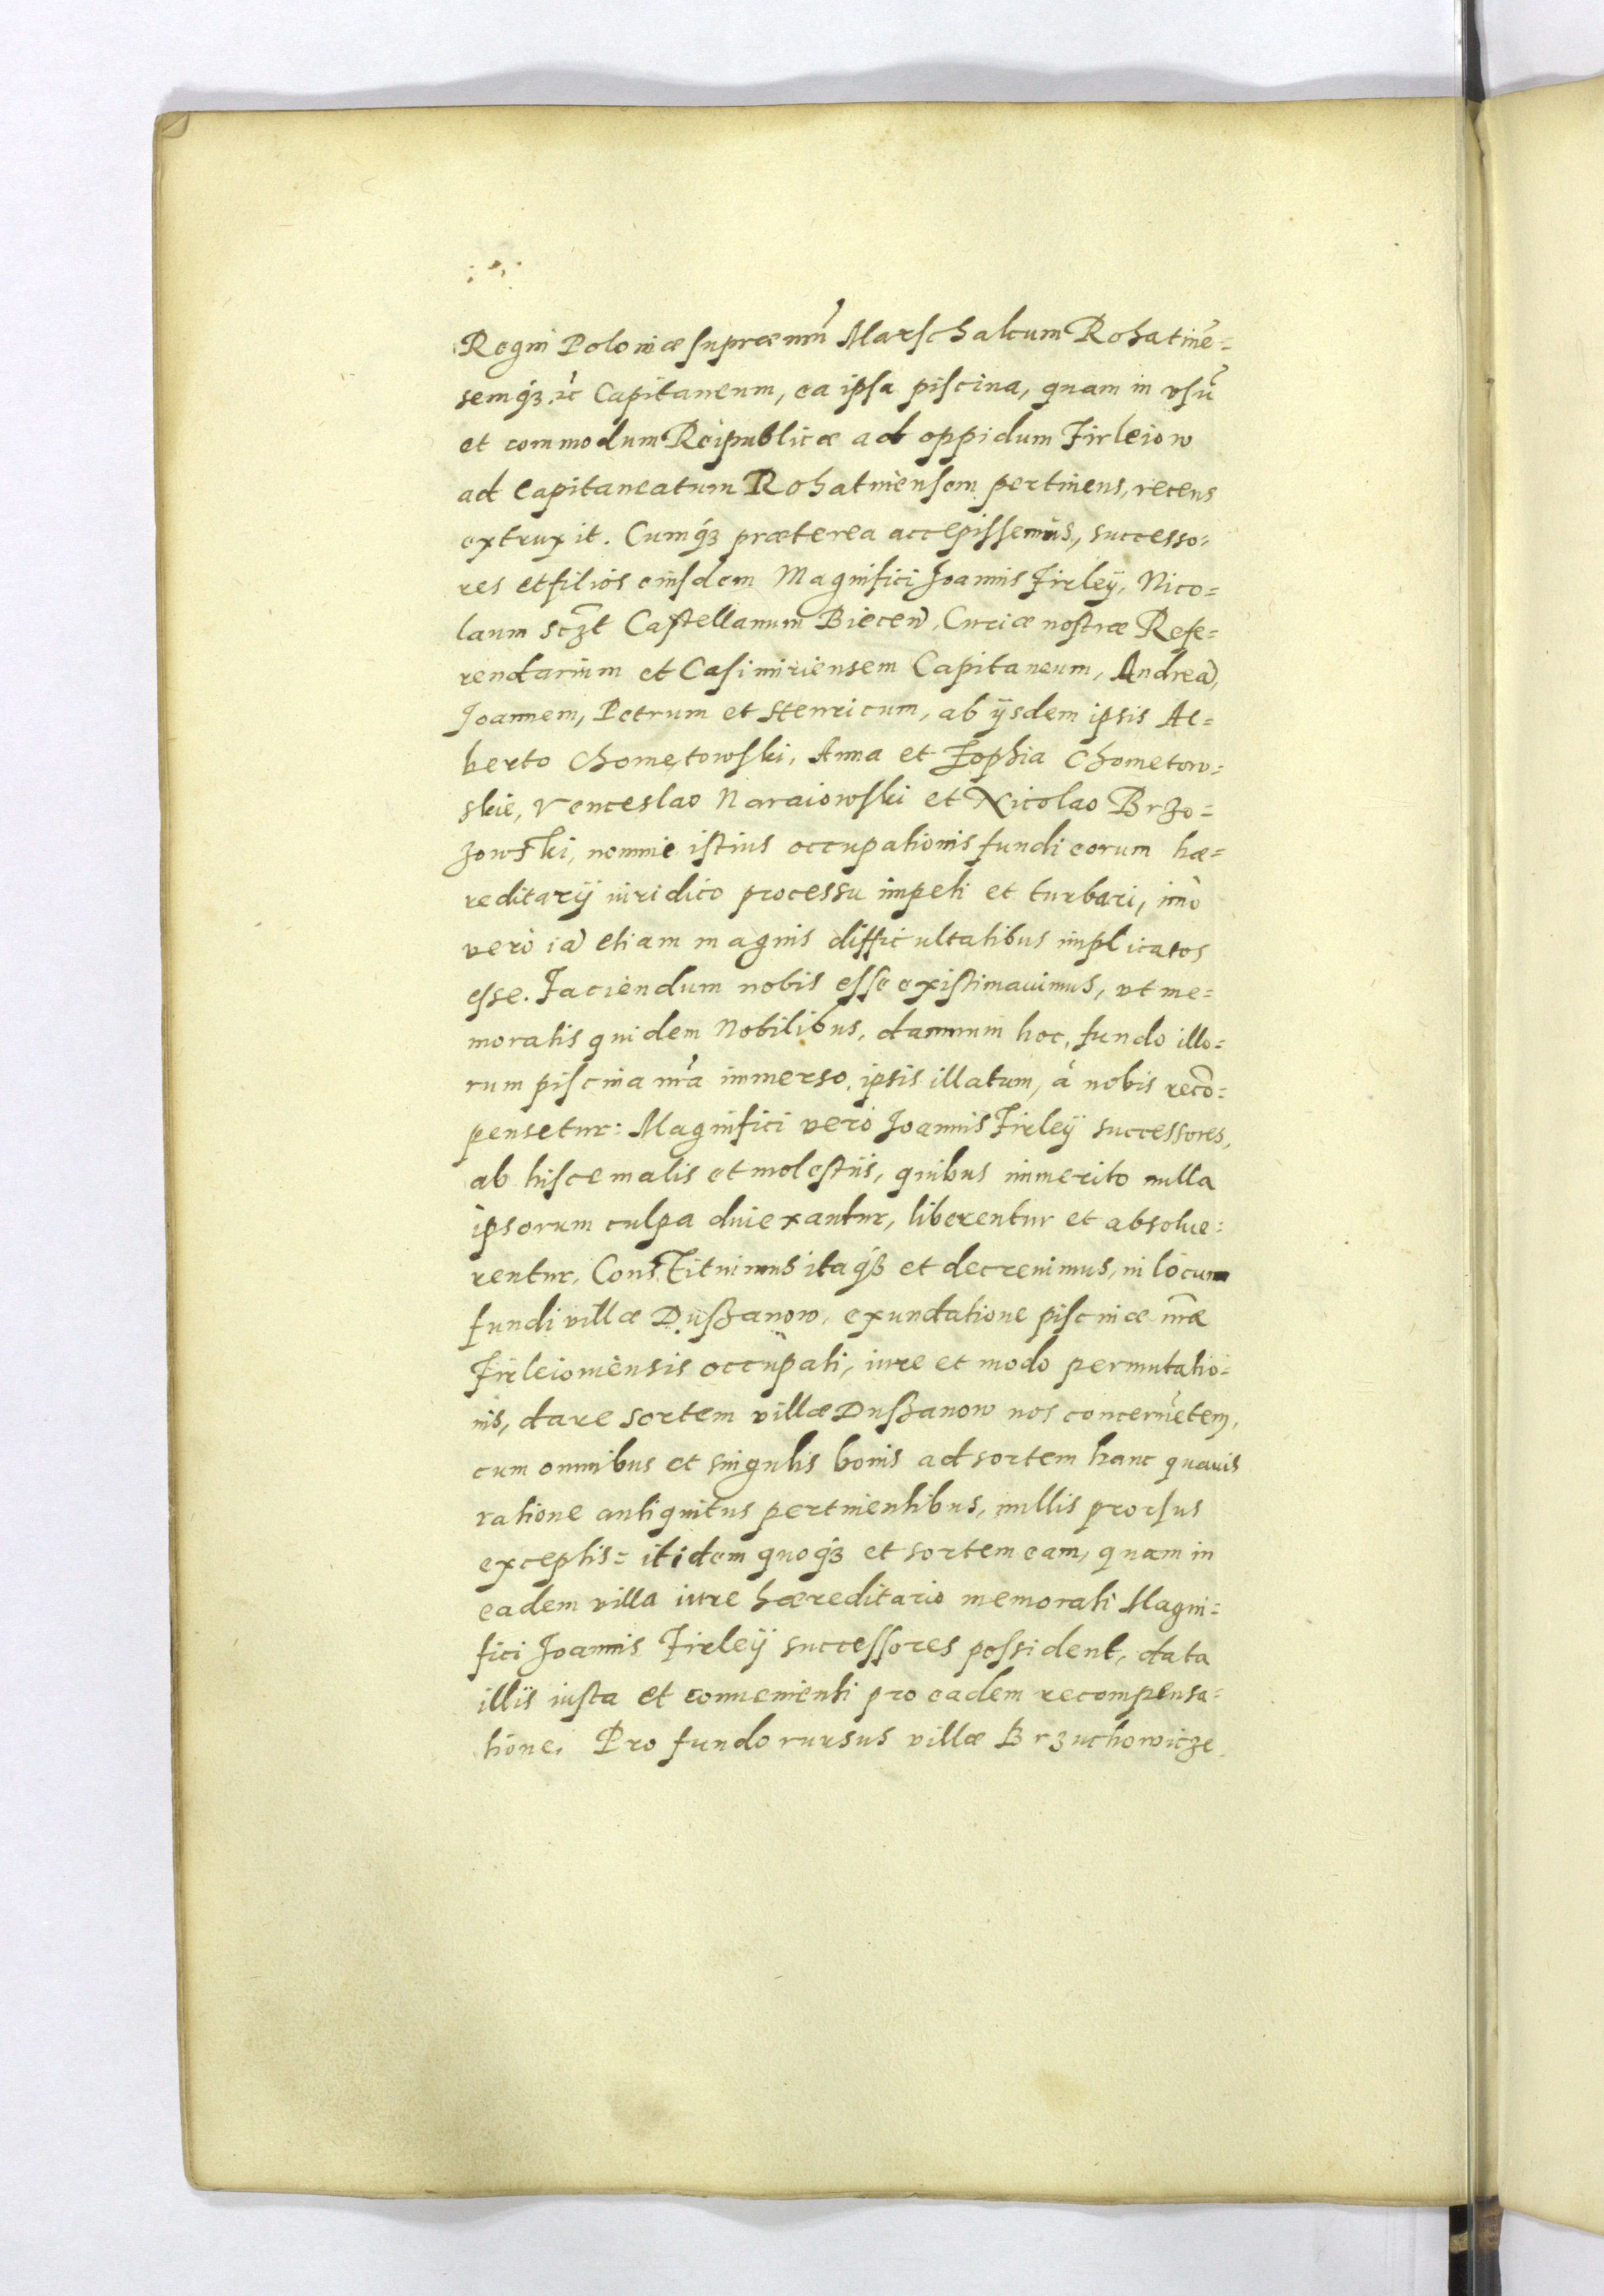 Regni Poloniæ supræmũ Marschalcum Rohatinẽ=
semq́ꝫ ꝛc̀ Capitaneum, ea ipsa piscina, quam in vsũ
et commodum Reipublicæ ad oppidum Firleiow
ad Capitaneatum Rohatinensem pertinens, recens
extruxit. Cumq́ꝫ præterea accepissemus, successo=
res et filios eiusdem Magnifici Joannis Firleÿ, Nico=
laum sczt̃ Castellanum Biecen̄, Curiæ nostræ Refe=
rendarium et Casimiriensem Capitaneum, Andreā,
Joannem, Petrum et Henricum, ab ÿsdem ipsis Al=
berto Chometowski, Anna et Zophia Chometow=
skie, Venceslao Naraiowski et Nicolao Brzo=
zowski, nomine istius occupationis fundi eorum hæ=
reditarÿ iuridico processu impeti et turbari, imò
verò iā etiam magnis difficultatibus implicatos
esse. Faciendum nobis esse existimauimus, vt me=
moratis quidem Nobilibus, damnum hoc, fundo illo=
rum piscina nr̃a immerso, ipsis illatum, à nobis recõ=
pensetur: Magnifici verò Joannis Firleÿ successores,
ab hisce malis et molestiis, quibus immerito nulla
ipsorum culpa diuexantur, liberentur et absolue=
rentur. Constituimus itaq́ꝫ et decreuimus, in locum
fundi villæ Dusʒanow, exundatione piscinæ nr̃æ
Firleiouiensis occupati, iure et modo permutatio=
nis, dare sortem villæ Dusʒanow nos concernẽtem,
cum omnibus et singulis bonis ad sortem hanc quauis
ratione antiquitus pertinentibus, nullis prorsus
exceptis= itidem quoq́ꝫ et sortem eam, quam in
eadem villa iure hæreditario memorati Magni=
fici Joannis Firleÿ successores possident, data
illis iusta et conuenienti pro eadem recompensa=
tione. Pro fundo rursus villæ Brzuchowicze